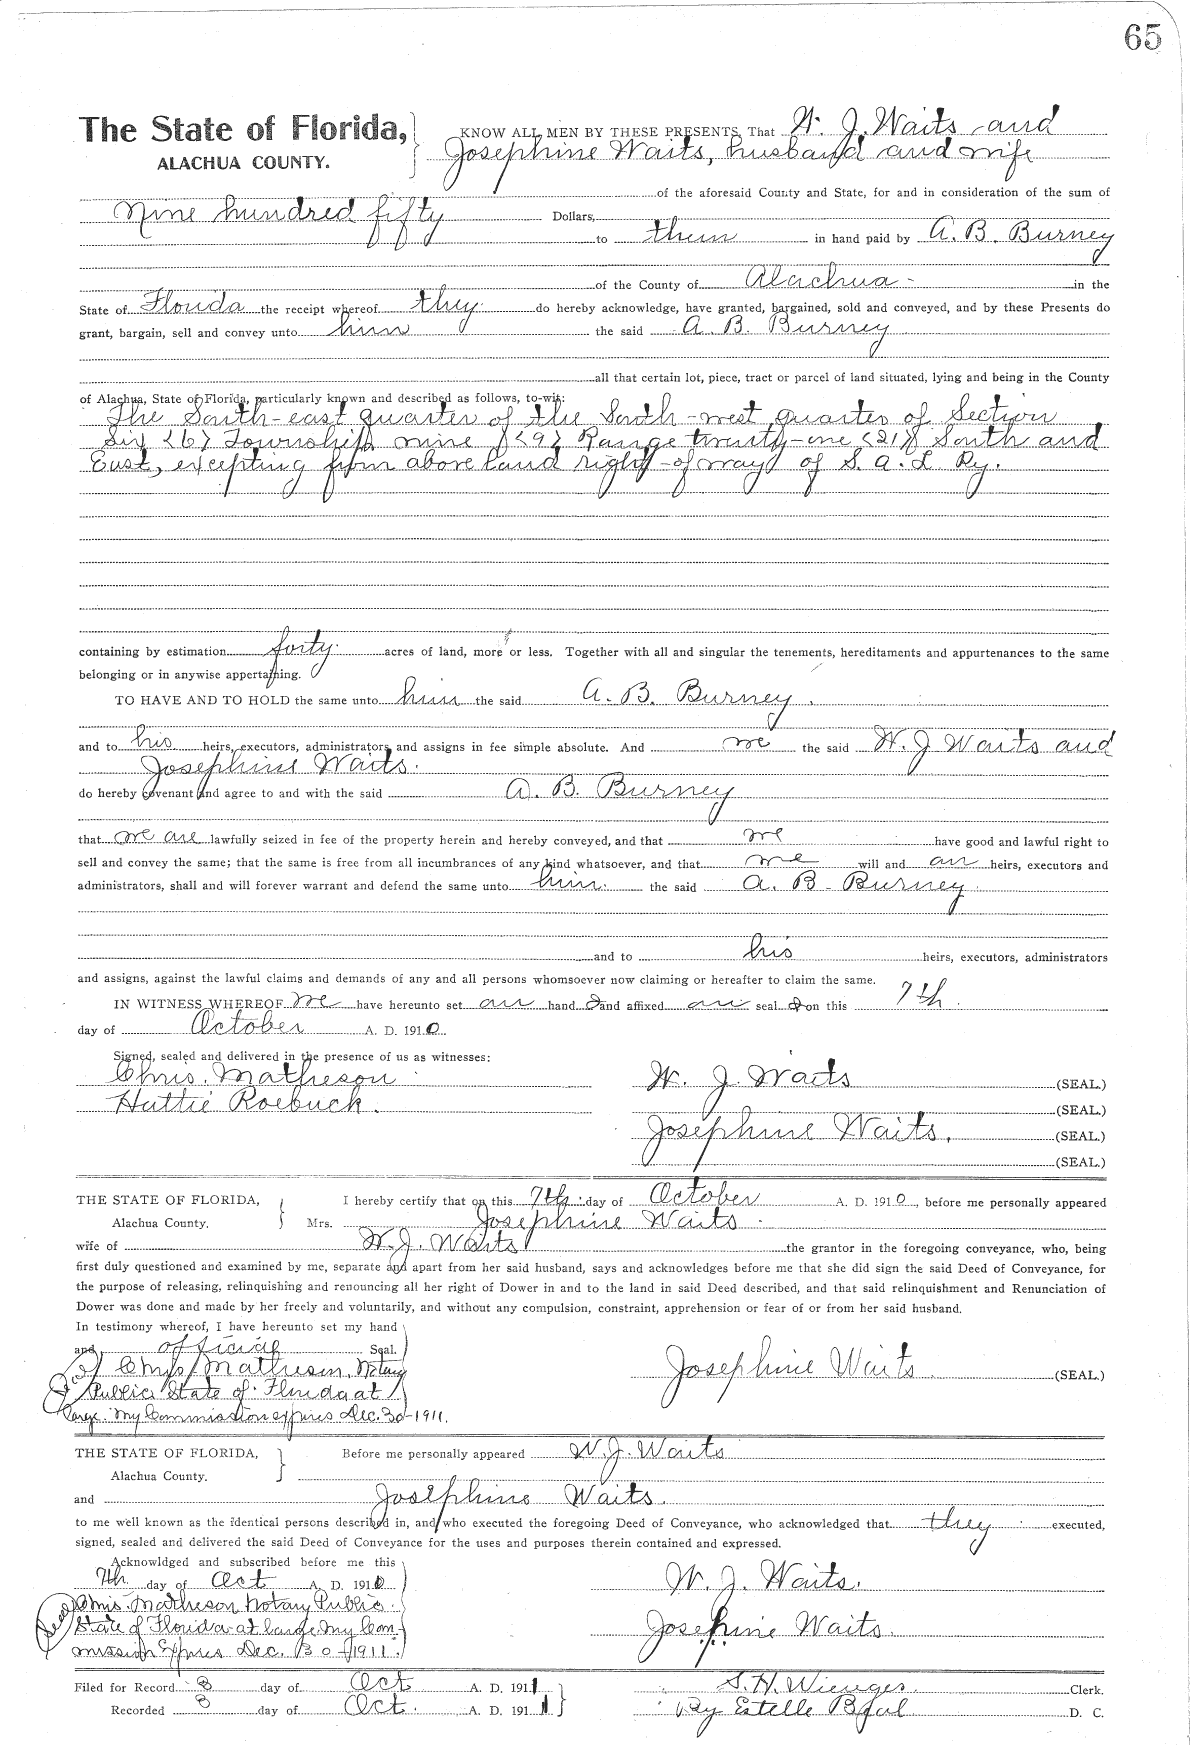 65
The State of Florida, KNOW ALL MEN BY THESE PRESENTS, That W. J. Waits and
ALACHUA COUNTY. Josephine Waits, husband and wife
of the aforesaid County and State, for and in consideration of the sum of
Nine hundred fifty Dollars,
to them in hand paid by A. B. Burney
of the County of Alachua in the
State of Florida the receipt whereof they do hereby acknowledge, have granted, bargained, sold and conveyed, and by these Presents do
grant, bargain, sell and convey unto him the said A B. Burney
all that certain lot, piece, tract or parcel of land situated, lying and being in the County
of Alachua, State of Florida, particularly known and described as follows, to-wit:
The South-east quarter of the South-west quarter of Section
Six <6> Township nine <9> Range twenty-one <21> South and
East, excepting from above land right-of way of S. A. L Ry.
containing by estimation forty acres of land, more or less. Together with all and singular the tenements, hereditaments and appurtenances to the same
belonging or in anywise appertaining.
TO HAVE AND TO HOLD the same unto him the said A. B. Burney.
and to his heirs, executors, administrators and assigns in fee simple absolute. And we the said W. J Waits and
Josephine Waits.
do hereby covenant and agree to and with the said A. B. Burney
that we are lawfully seized in fee of the property herein and hereby conveyed, and that we have good and lawful right to
sell and convey the same; that the same is free from all incumbrances of any kind whatsoever, and that we will and our heirs, executors and
administrators, shall and will forever warrant and defend the same unto him the said A. B Burney
and to his heirs, executors, administrators
and assigns, against the lawful claims and demands of any and all persons whomsoever now claiming or hereafter to claim the same.
IN WITNESS WHEREOF we have hereunto set our hand s and affixed our seal s on this 7th.
day of October A. D. 1910.
Signed, sealed and delivered in the presence of us as witnesses:
Chris. Matheson W. J. Waits (SEAL.)
Hattie Roebuck. (SEAL.)
Josephine Waits. (SEAL.)
(SEAL.)
THE STATE OF FLORIDA, I hereby certify that on this 7th day of October A. D. 1910, before me personally appeared
Alachua County. Mrs. Josephine Waits
wife of W. J. Waits the grantor in the foregoing conveyance, who, being
first duly questioned and examined by me, separate and apart from her said husband, says and acknowledges before me that she did sign the said Deed of Conveyance, for
the purpose of releasing, relinquishing and renouncing all her right of Dower in and to the land in said Deed described, and that said relinquishment and Renunciation of
Dower was done and made by her freely and voluntarily, and without any compulsion, constraint, apprehension or fear of or from her said husband.
In testimony whereof, I have hereunto set my hand
and official Seal.
Chris Matheson, Notary Josephine Waits (SEAL.)
Public State of Florida at
large. My Commission expires Dec. 30-1911.
THE STATE OF FLORIDA, Before me personally appeared W. J. Waits
Alachua County.
and Josephine Waits.
to me well known as the identical persons described in, and who executed the foregoing Deed of Conveyance, who acknowledged that they executed,
signed, sealed and delivered the said Deed of Conveyance for the uses and purposes therein contained and expressed.
Acknowldged and subscribed before me this
7th day of Oct A. D. 1910 W. J. Waits.
Seal Chris. Matheson Notary Public
State of Florida at large My Com- Josephine Waits.
mission Expires Dec. 30-1911.
Filed for Record 8 day of Oct A. D. 1911 S. H. Wienges Clerk.
Recorded 8 day of Oct. A. D. 1911 By Estelle D. C.